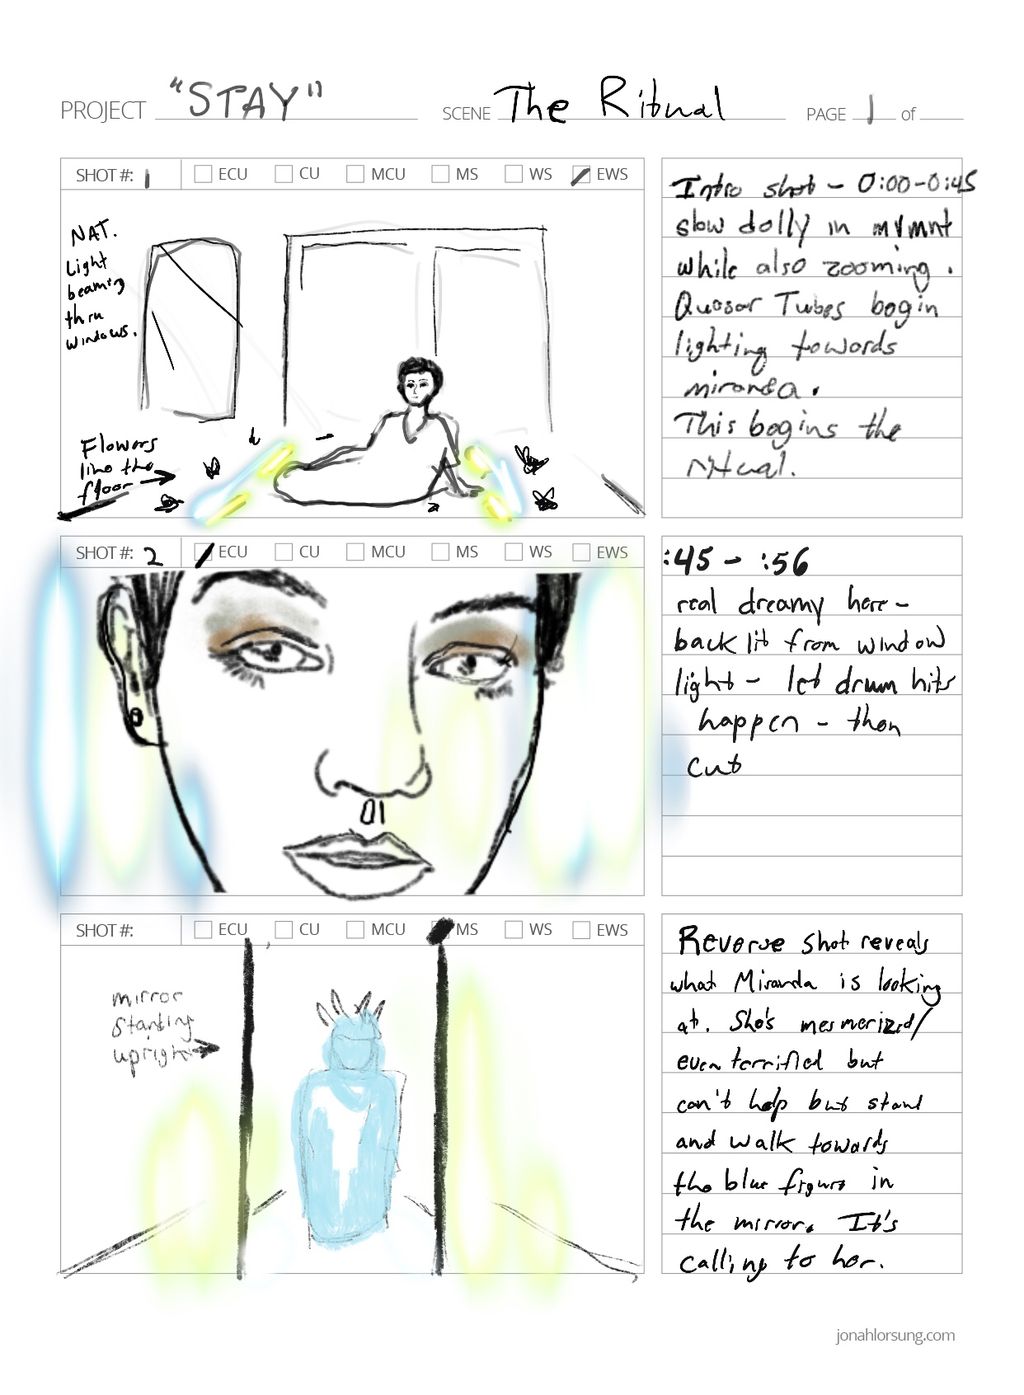 PROJECT "STAY" SCENE The Ritual PAGE 1 of
SHOT #: 1 ECU CU MCU MS WS EWS
NAT.
Light
beaming
thru
windows.
Flowers
line the
floor
Intro shot - 0:00-0:45
slow dolly in mvmnt
while also zooming.
Quasar Tubes begin
lighting towards
miranda.
This begins the
ritual.
SHOT #: 2 ECU CU MCU MS WS EWS
:45 - :56
real dreamy here -
back lit from window
light - let drum hits
happen - then
cut
SHOT #: ECU CU MCU MS WS EWS
mirror
standing
upright
Reverse shot reveals
what Miranda is looking
at. She's mesmerized/
even terrified but
can't help but stand
and walk towards
the blue figure in
the mirror. It's
calling to her.
jonahlorsung.com